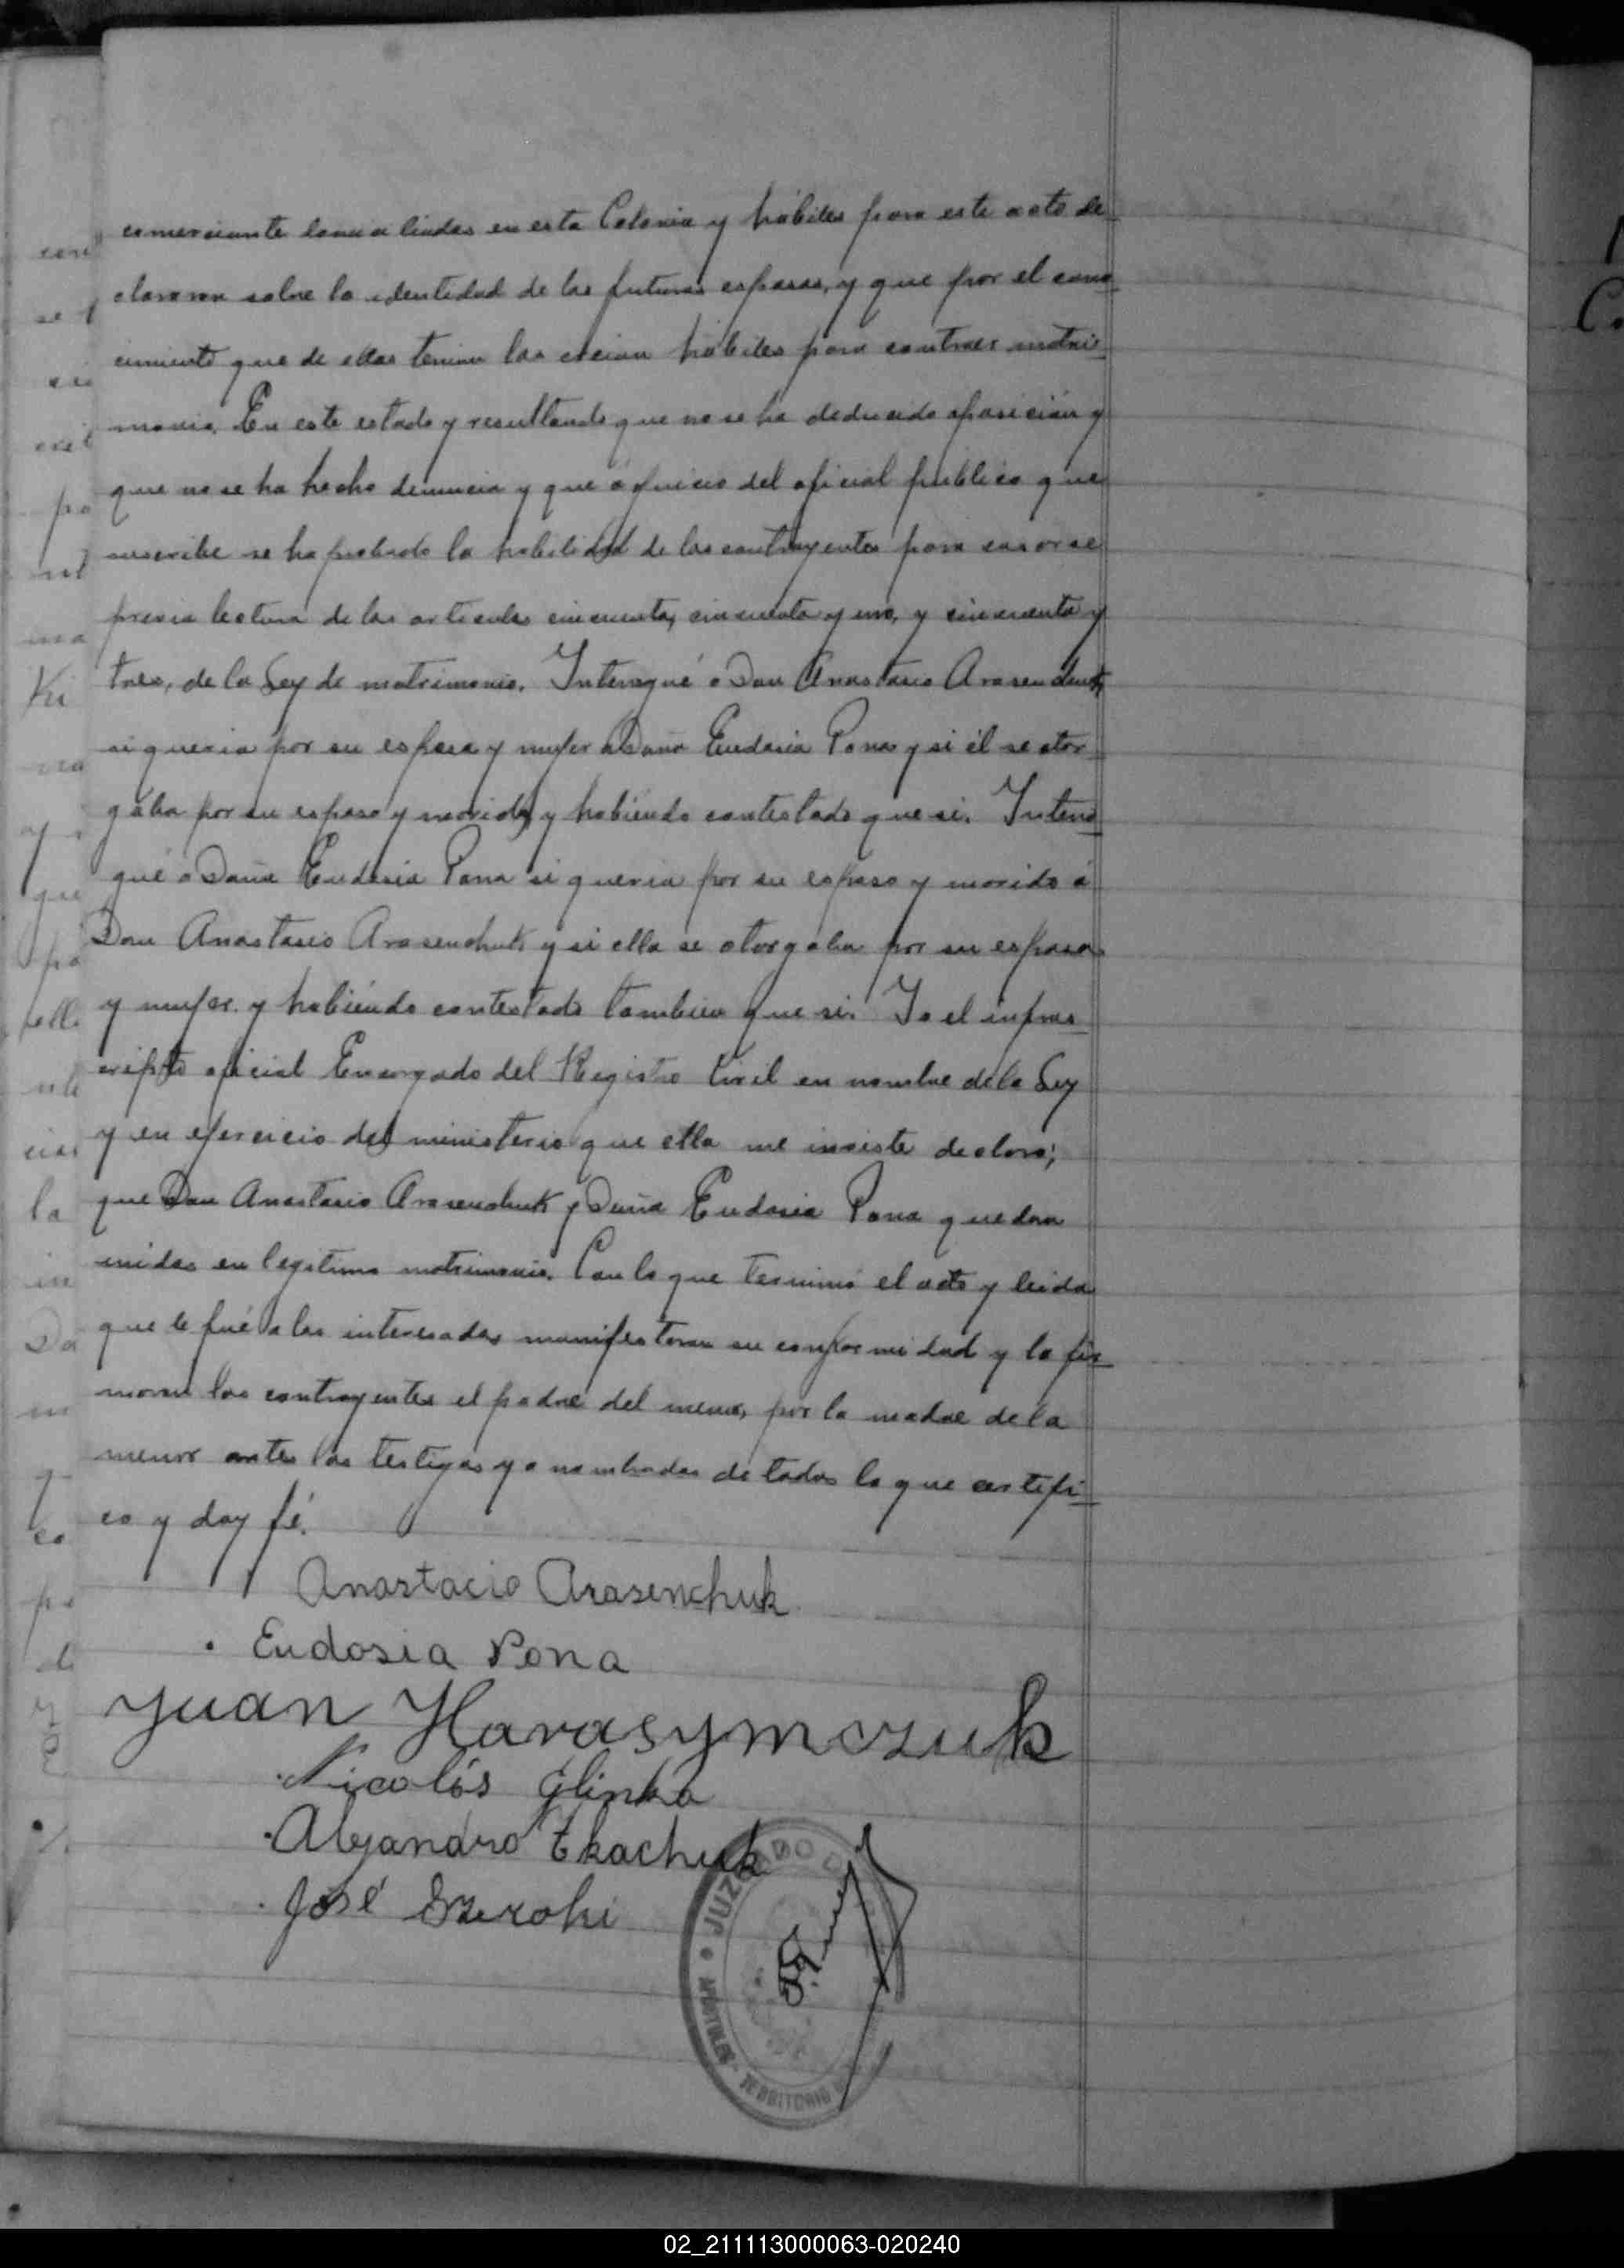 comerciante domiciliados en esta Colonia y hábiles para este acto de
clararon sobre la identidad de los futuros esposos, y que por el cono
cimiento que de ellos tenian los creian hábiles para contraer matri
monio. En este estado y resultando que no se ha deducido oposición y
que no se ha hecho denuncia y que á juicio del oficial público que
suscribe se ha probado la habilidad de los contrayentes para casarse
previa lectura de los articulos cincuenta, cincuenta y uno, y cincuenta y
tres, de la Ley de matrimonio. Interogué a Don Anastacio Arasenchuk
si queria por su esposa y mujer a Doña Eudosia Pona y si él se otor
gaba por su esposo y marido, y habiendo contestado que si. Intero
gué a Doña Eudosia Pona si queria por su esposo y marido á
Don Anastacio Arasenchuk y si ella se otorgaba por su esposa
y mujer y habiendo contestado tambien que si. Yo el infras
cripto oficial Encargado del Registro Civil en nombre de la Ley
y en ejercicio del ministerio que ella me insiste declaro;
que Don Anastacio Arasenchuk y Doña Eudosia Pona quedan
unidos en legitimo matrimonio. Con lo que terminó el acto y leida
que le fué a los interesados manifestaron su conformidad y la fir
maron los contrayentes el padre del menor, por la madre de la
menor antes los testigos ya nombrados de todos lo que certifi
co y doy fé.
Anastacio Arasenchuk
Eudosia Pona
Juan Harasymczuk
Nicolás Glinka
Alejandro Tkachuk
José
JUZGADO
APOSTOLES TERRITORIO
02_211113000063-020240